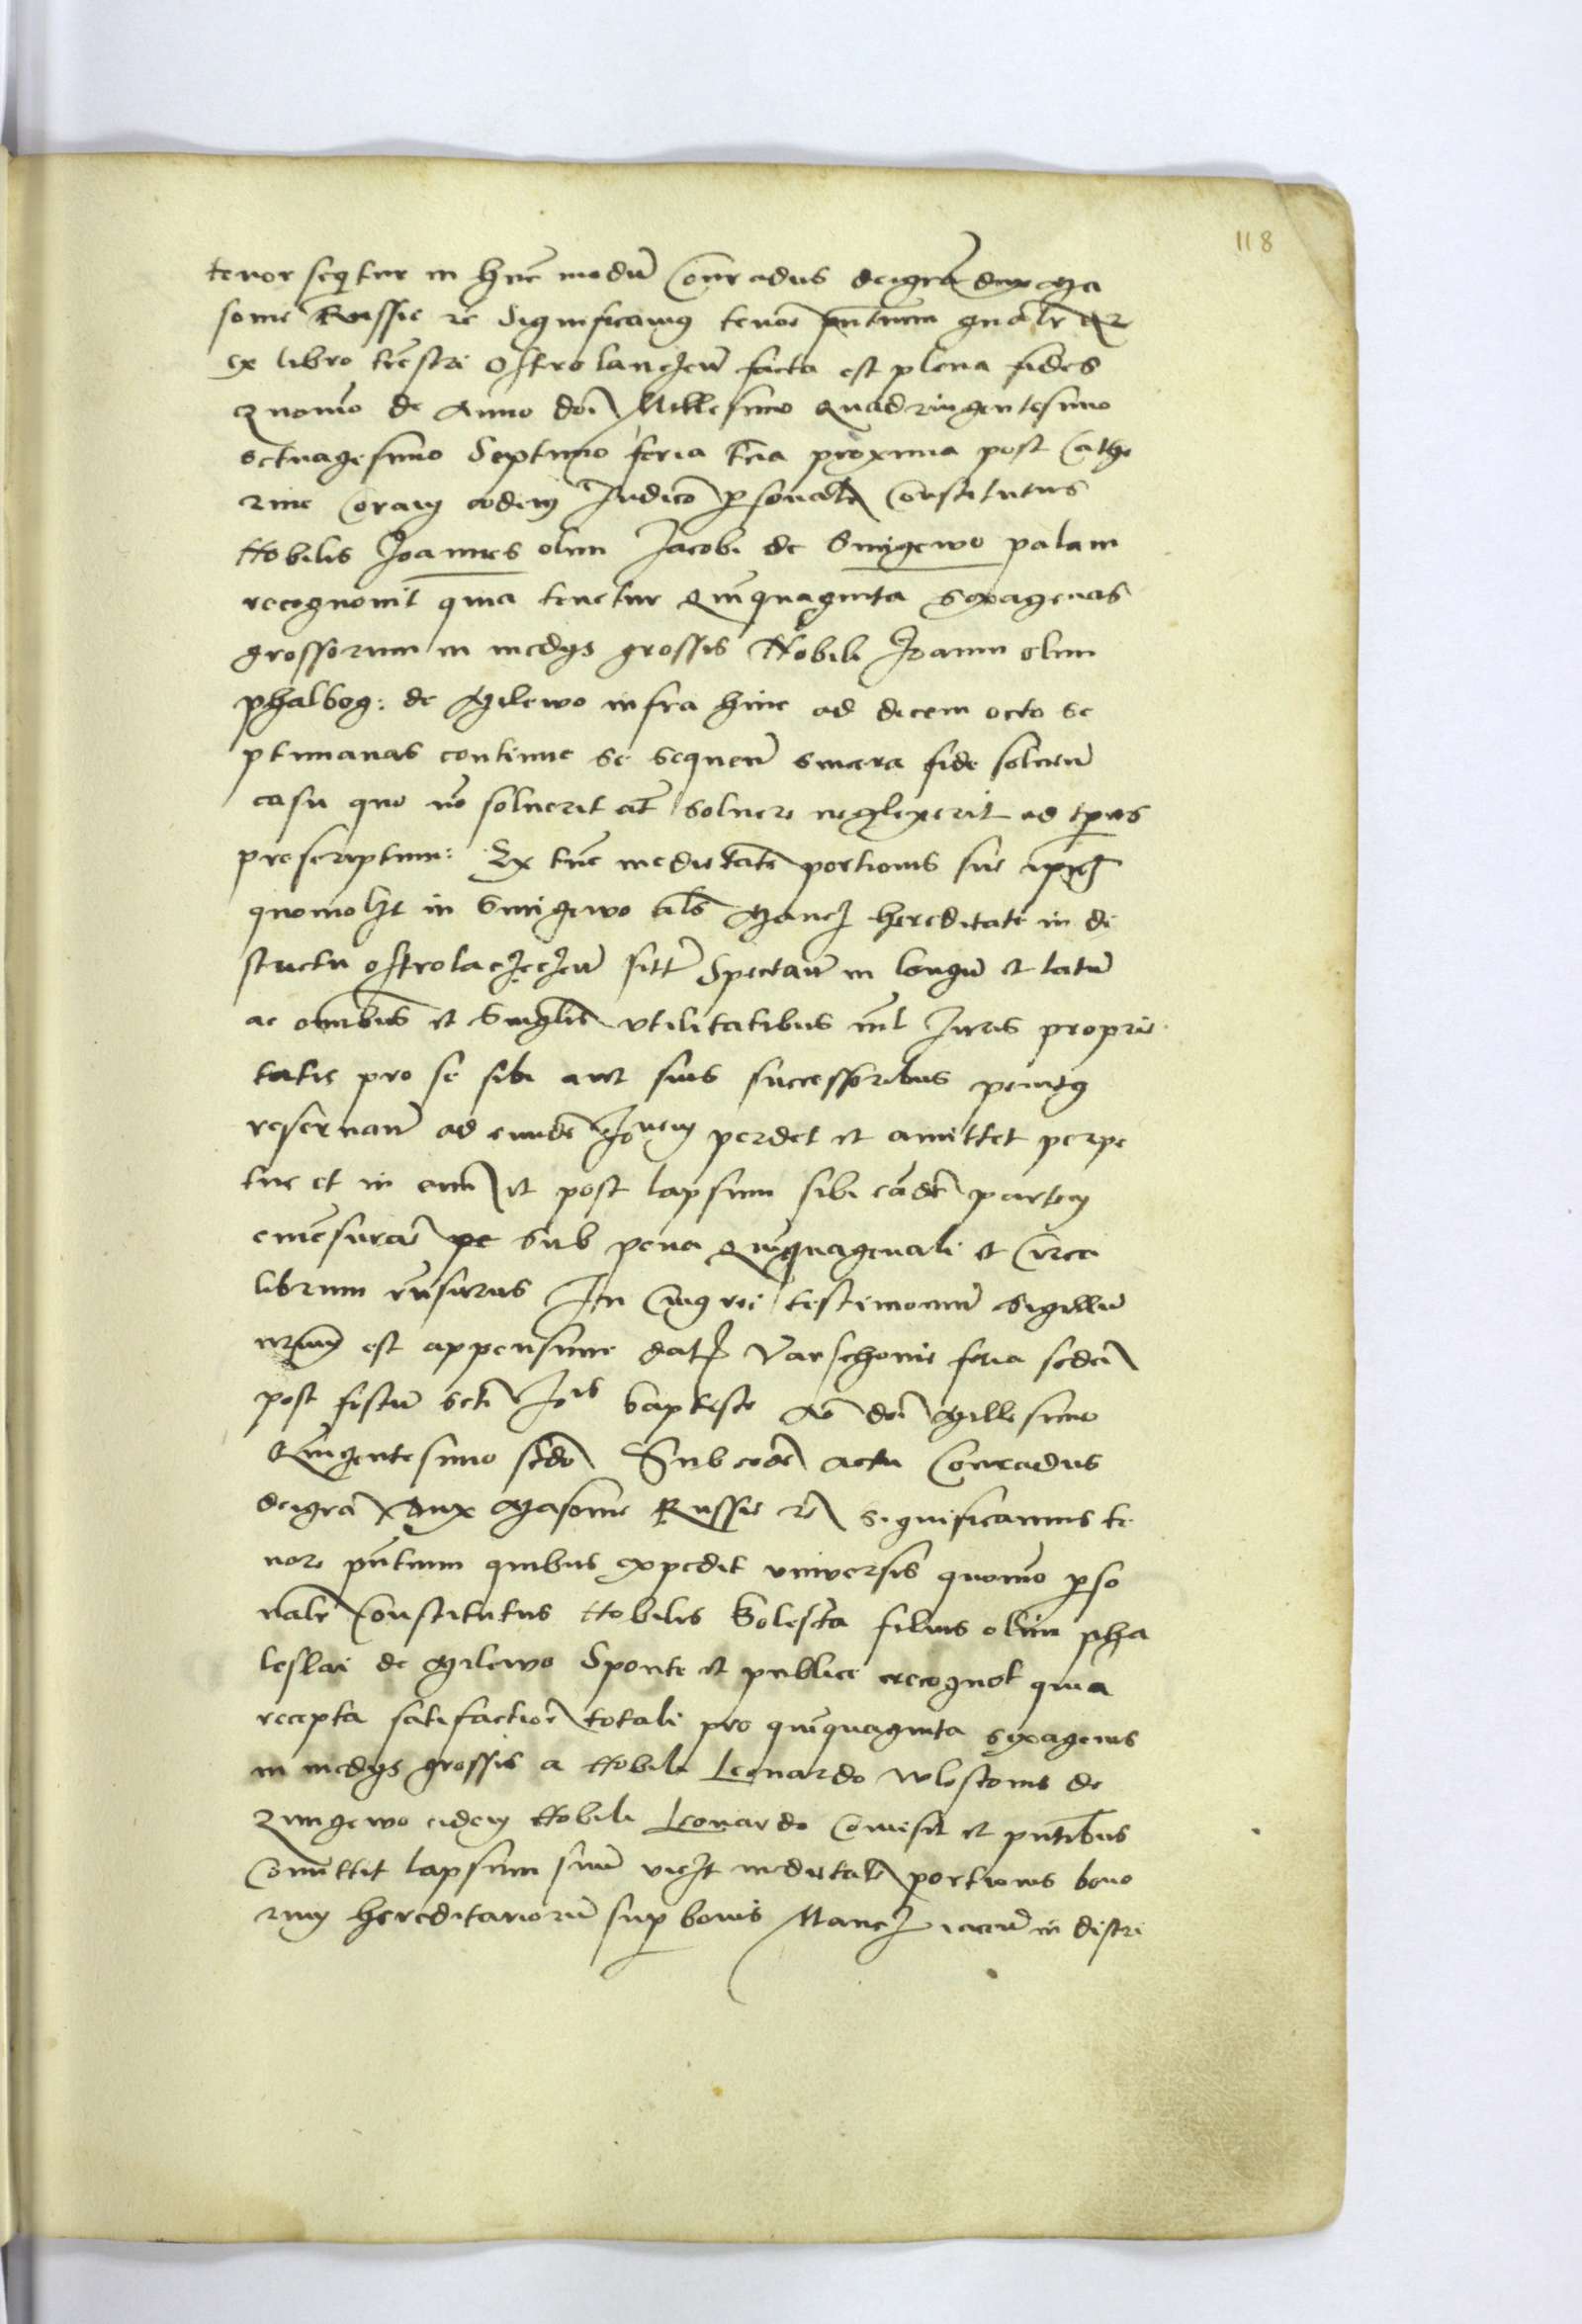 118
tenor seqtur in hũc modũ Conradus deigrã dux Ma
sovie Russie rẽ Significamus tenore pñtium gnalr
ex libro trẽstri Ostrolanczeñ facta est plena fides
quomo de Anno dnĩ Millesimo quadringentesimo
octuagesimo Septimo feria tcia proxima post Cathe
rine Coram eodem Judico psonalr Constitutus
Nobilis Joannes olim Jacobi de Smigewo palam
recognovit quia tenetur quinquaginta sexagenas
grossorum in medys grossis Nobili Joanni olim
phalbog: de Milewo infra hinc ad decem octo se
ptimanas continue se sequeñ sincera fide solveñ
casu quo nõ solverit aut solvere neglexerit ad tpus
prescriptum: Ex tũc medietatẽ portionis sue
quomolzt in Smigewo als Mancz hereditate in di
strictu ostrolaczeczeñ sitt Spectañ in longũ et latũ
ac omnibus et singlis utilitatibus nil Juris proprie
tatis pro se sibi aut suis successoribus penitus
reservañ ad eundẽ Jonem perdet et amittet perpe
tue et in evũ et post lapsum sibi eãdẽ partem
emẽsurare pe sub pena quĩquagenali et Circa
librum rñsurus In Cuius rei testimonium sigillũ
nrum est appensum datũ Varschovie feria secda
post festũ scti Jois baptiste Ao dnĩ Millesimo
Quingentesimo secdo Sub eodẽ actu Conradus
deigrã dux Masovie Russie rẽ significamus te
nore pñtium quibus expedit universis quomo pso
nalr Constitutus Nobilis Bolesta filius olim pha
leslai de Milewo Sponte et publice recognot quia
recepta satisfactiõe totali pro quĩquaginta sexagenis
in medys grossis a Nobili Leonardo wlostonis de
Zmigewo eidem Nobili Leonardo Comisit et pñtibus
Comittit lapsum suũ viczt medietatẽ portionis bono
rum hereditariorũ sup bonis Mancz iaceñ in distri